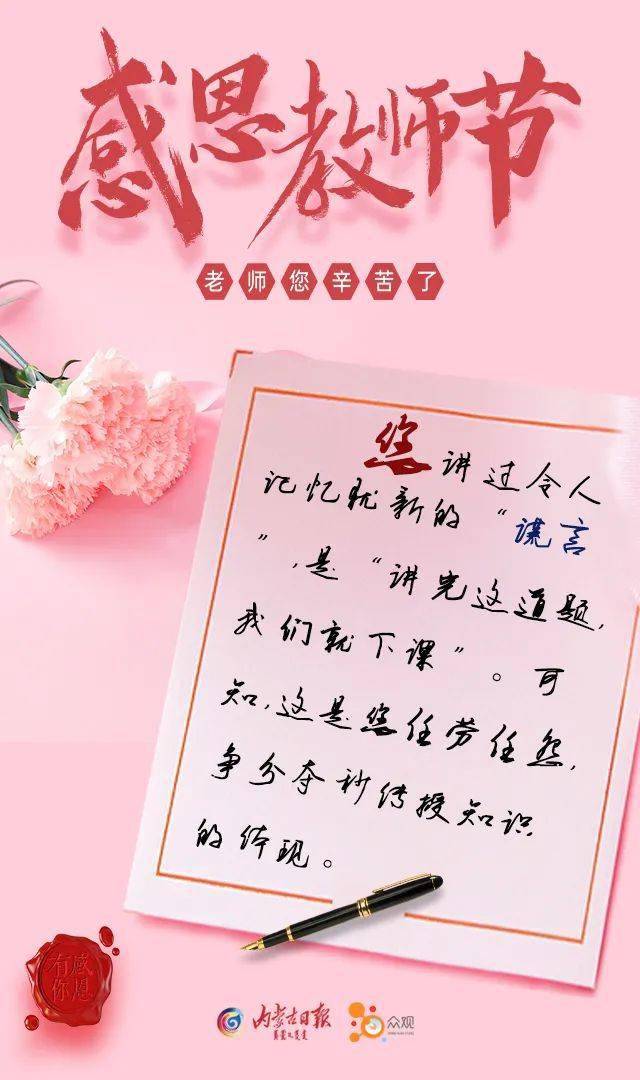 感恩教师节
老师您辛苦了
您讲过令人
记忆犹新的“谎言
”，是“讲完这道题，
我们就下课”。可
知，这是您任劳任怨，
争分夺秒传授知识
的体现。
有你
感恩
内蒙古日报
众观